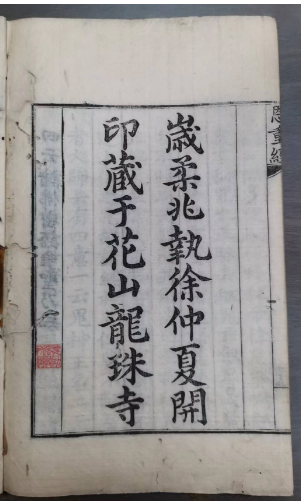 恩重經
歲柔兆執徐仲夏開
印藏于花山龍珠寺